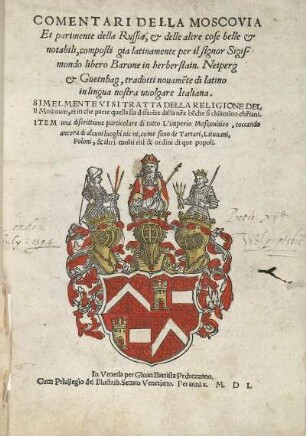 COMENTARI DELLA MOSCOVIA
Et parimente della Russia, & delle altre cose belle &
notabili, composti gia latinamente per il signor Sigis
mondo libero Barone in herberstain. Neiperg
& Guetnhag, tradotti novamẽte di latino
in lingua nostra vuolgare Italiana.
SIMELMENTE VI SI TRATTA DELLA RELIGIONE DEL
li Moscoviti, et in che parte quella sia differẽte dalla nr̃a bẽche si chiamino chr̃iani.
ITEM una discrittione particolare di tutto L'imperio Moscovitico, toccando
ancora di alcuni luoghi vicini, come sono de Tartari, Lituuani,
Poloni, & altri molti riti & ordini di que popoli.
July 1794
In Venetia per Gioan Battista Pedrezzano.
Cum Privilegio del Illustriss. Senato Venetiano. Per anni. x. M. D. L